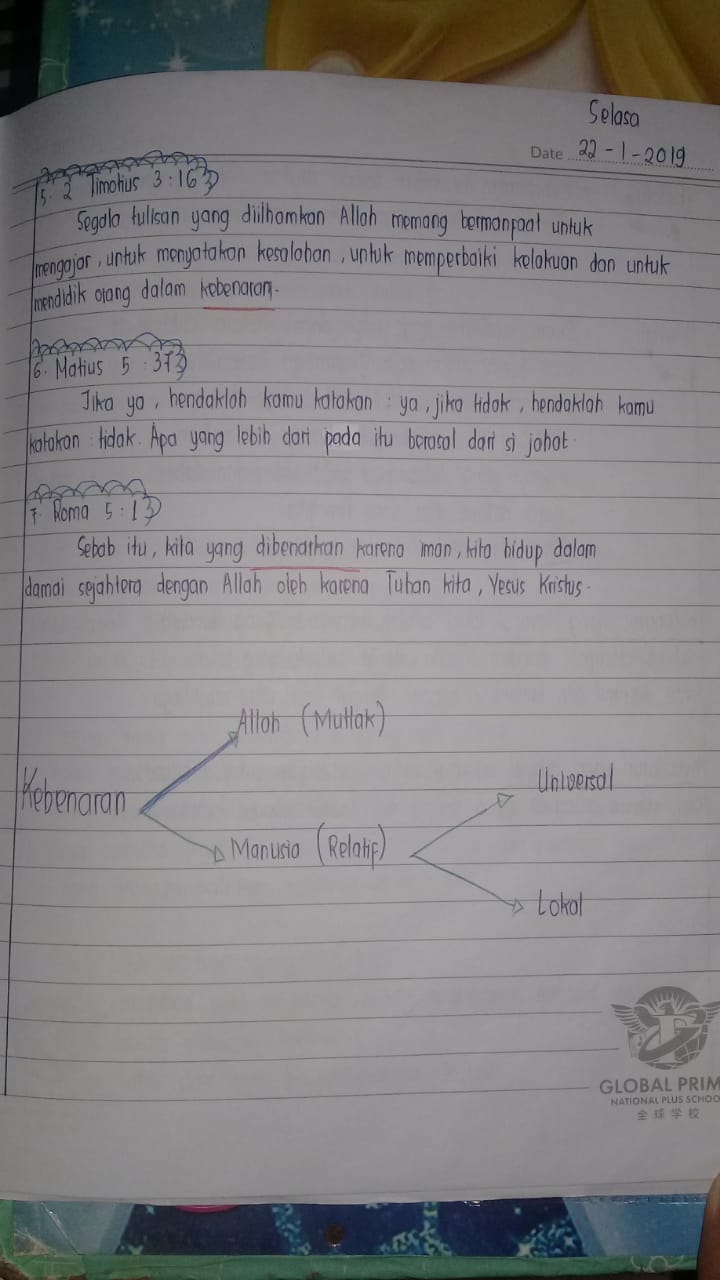 Selasa
Date 22-1-2019
5. 2 Timotius 3:16
Segala tulisan yang diilhamkan Allah memang bermanfaat untuk
mengajar, untuk menyatakan kesalahan, untuk memperbaiki kelakuan dan untuk
mendidik orang dalam kebenaran.
6. Matius 5:37
Jika ya, hendaklah kamu katakan : ya, jika tidak, hendaklah kamu
katakan : tidak. Apa yang lebih dari pada itu berasal dari si jahat.
7. Roma 5:1
Sebab itu, kita yang dibenarkan karena iman, kita hidup dalam
damai sejahtera dengan Allah oleh karena Tuhan kita, Yesus Kristus.
Allah (Mutlak)
Kebenaran
Universal
Manusia (Relatif)
Lokal
GLOBAL PRIM
NATIONAL PLUS SCHOO
全球学校